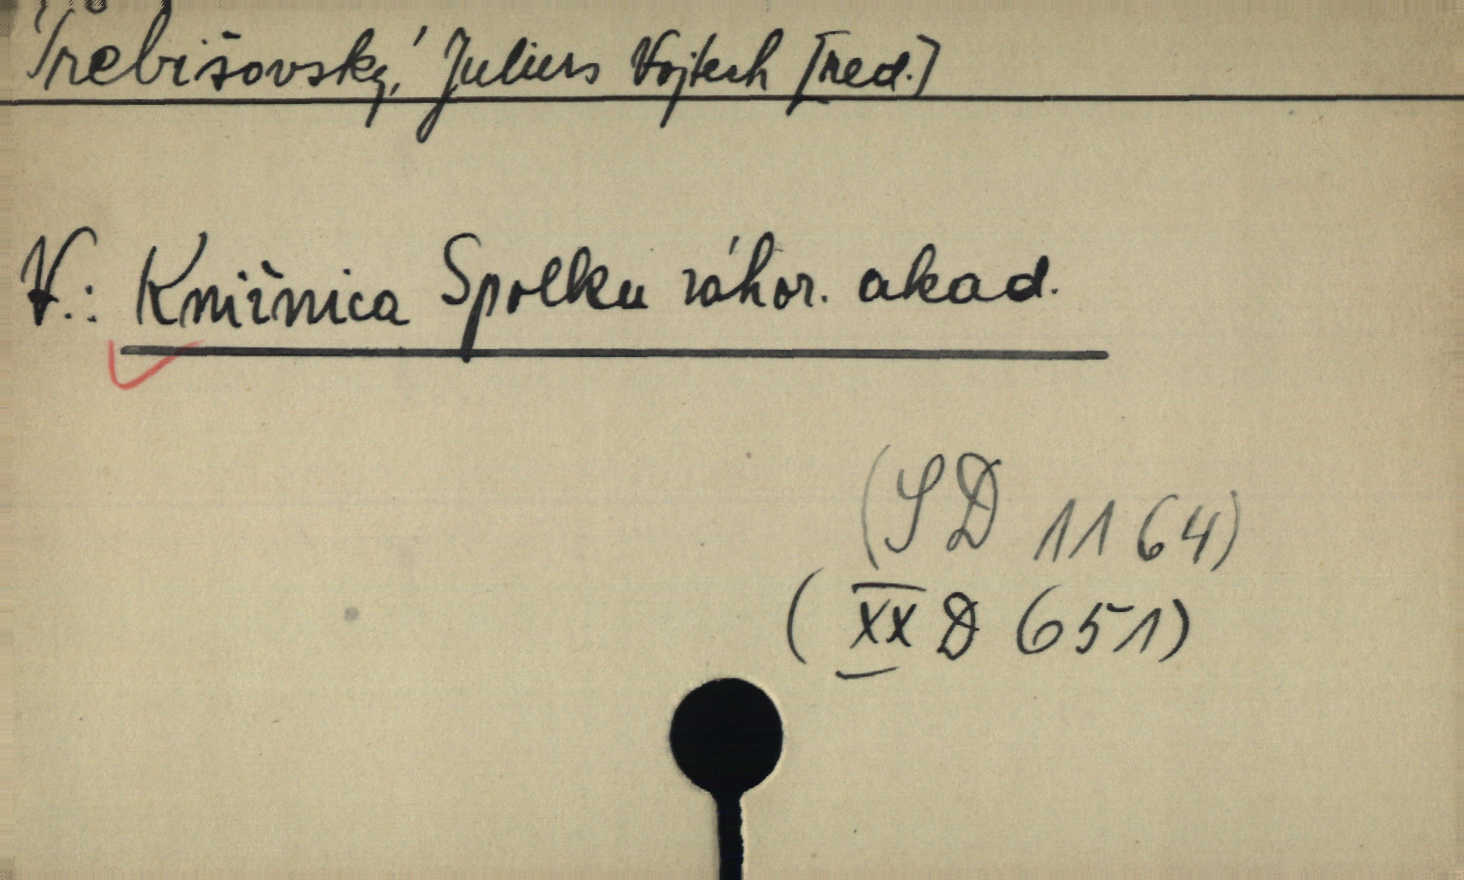 Trebišovský, Julius Vojtech [red.]
V.: Knižnica Spolku záhor. akad.
(SD 1164)
(XX D 651)